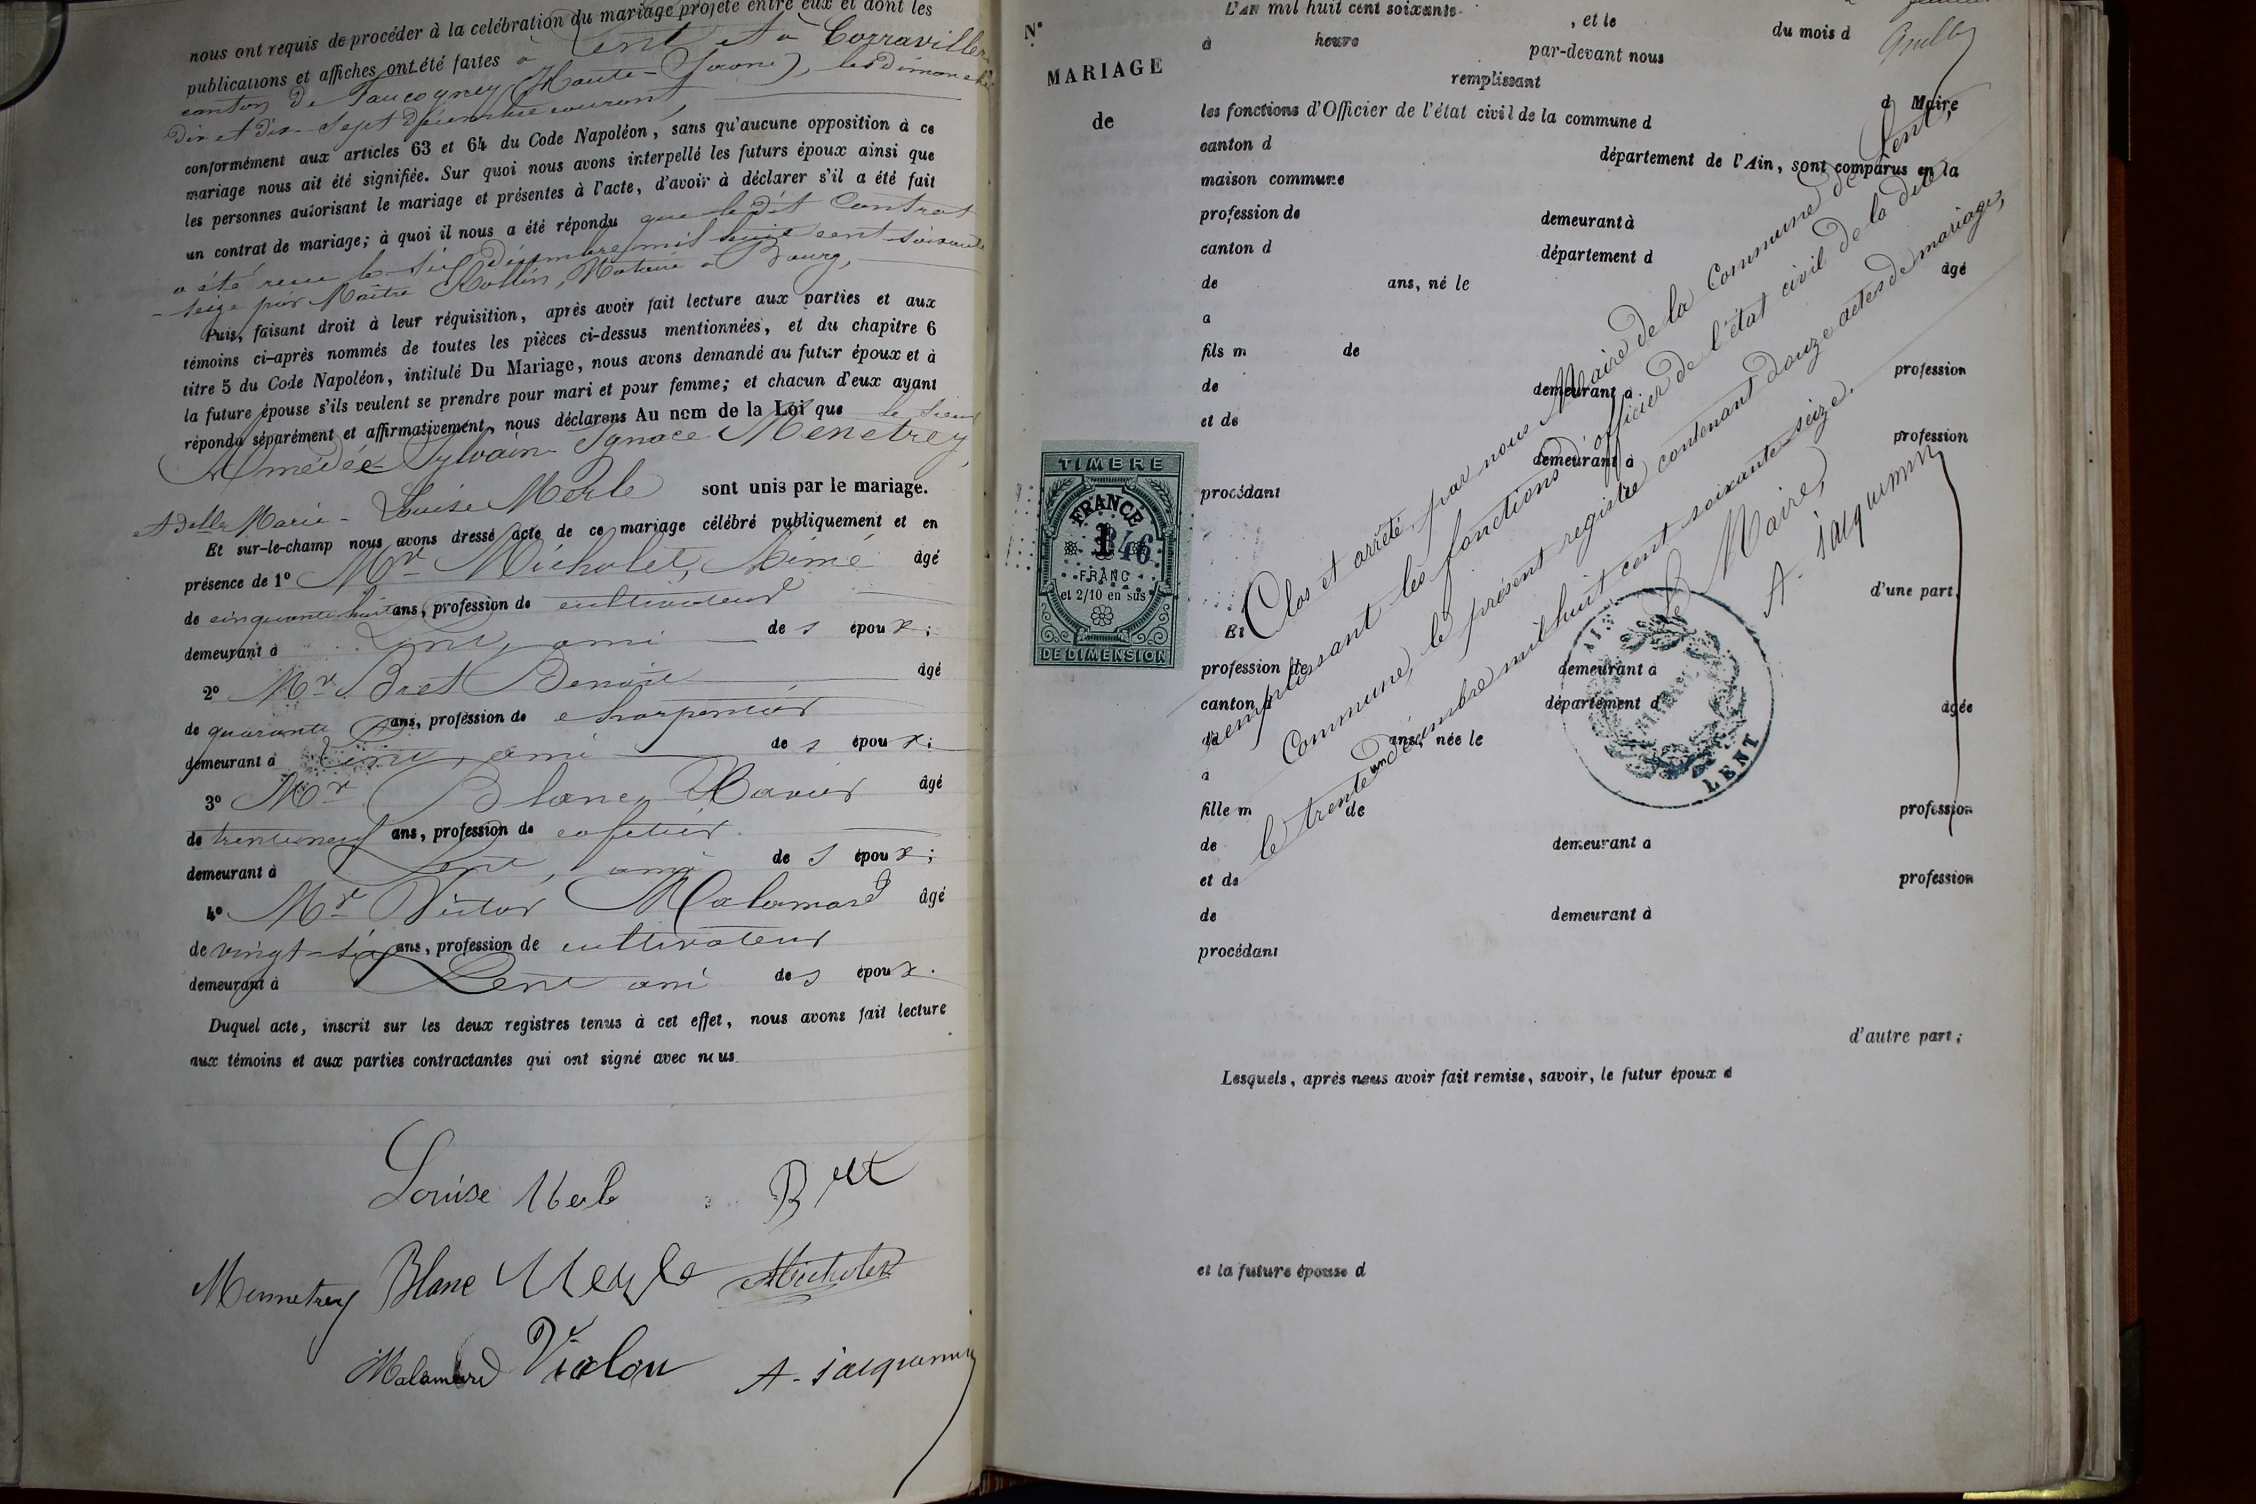 nous ont requis de procéder à la celébration du mariage projeté entre eux et dont les
publications et affiches ont été faites à Lent et à Corravillers
canton de Faucogney (Haute-Saône), les dimanches
dix et dix-sept décembre courant,
conformément aux articles 63 et 64 du Code Napoléon, sans qu'aucune opposition à ce
mariage nous ait été signifiée. Sur quoi nous avons interpellé les futurs époux ainsi que
les personnes autorisant le mariage et présentes à l'acte, d'avoir à déclarer s'il a été fait
un contrat de mariage; à quoi il nous a été répondu que le dit Contrat
a été reçu le six décembre mil huit cent soixante
-seize par Maître Rollin, Notaire à Bourg,
Puis, faisant droit à leur réquisition, après avoir fait lecture aux parties et aux
témoins ci-après nommés de toutes les pièces ci-dessus mentionnées, et du chapitre 6
titre 5 du Code Napoléon, intitulé Du Mariage, nous avons demandé au futur époux et à
la future épouse s'ils veulent se prendre pour mari et pour femme; et chacun d'eux ayant
répondu séparément et affirmativement, nous déclarons Au nom de la Loi que le sieur
Amédée Sylvain Ignace Menetrey,
et Delle Marie-Louise Merle sont unis par le mariage.
Et sur-le-champ nous avons dressé acte de ce mariage célébré publiquement et en
présence de 1º Mr Micholet, Aimé âgé
de cinquante huit ans, profession de cultivateur
demeurant à Lent, ami des époux;
2º Mr Bret Benoit âgé
de quarante ans, profession de charpentier
demeurant à Lent, ami des époux;
3º Mr Blanc, Xavier âgé
de trente neuf ans, profession de cafetier
demeurant à Lent, ami des époux;
4º Mr Victor Malamard âgé
de vingt-six ans, profession de cultivateur
demeurant à Lent ami des époux.
Duquel acte, inscrit sur les deux registres tenus à cet effet, nous avons fait lecture
aux témoins et aux parties contractantes qui ont signé avec nous
Louise Merle Bret
Mennetrey Blanc Merle Micholet
Malamard Violon A. Jacquemin
Nº
MARIAGE
de
L'AN mil huit cent soixante- , et le du mois d
à heure par-devant nous
remplissant
les fonctions d'Officier de l'état civil de la commune d d Maire
canton d département de l'Ain, sont comparus en la
maison commune
profession de demeurant à
canton d département d
de ans, né le âgé
a
fils m de
de demeurant a profession
et de
demeurant à profession
procédant
TIMBRE
FRANCE
1
846
FRANC
et 2/10 en sus
DE DIMENSION
d'une part.
Et
profession de demeurant a
canton d département d
de ans, née le âgée
a
fille m de profession
de demeurant a
et de profession
de demeurant à
procédant
d'autre part;
Lesquels, après nous avoir fait remise, savoir, le futur époux d
et la future épouse d
Clos et arrêté par nous Maire de la Commune de Lent,
remplissant les fonctions d'officier de l'état civil de la dite
Commune, le présent registre contenant douze actes de mariages,
le trente un décembre mil huit cent soixante seize.
Le Maire,
A. Jacquemin
LENT